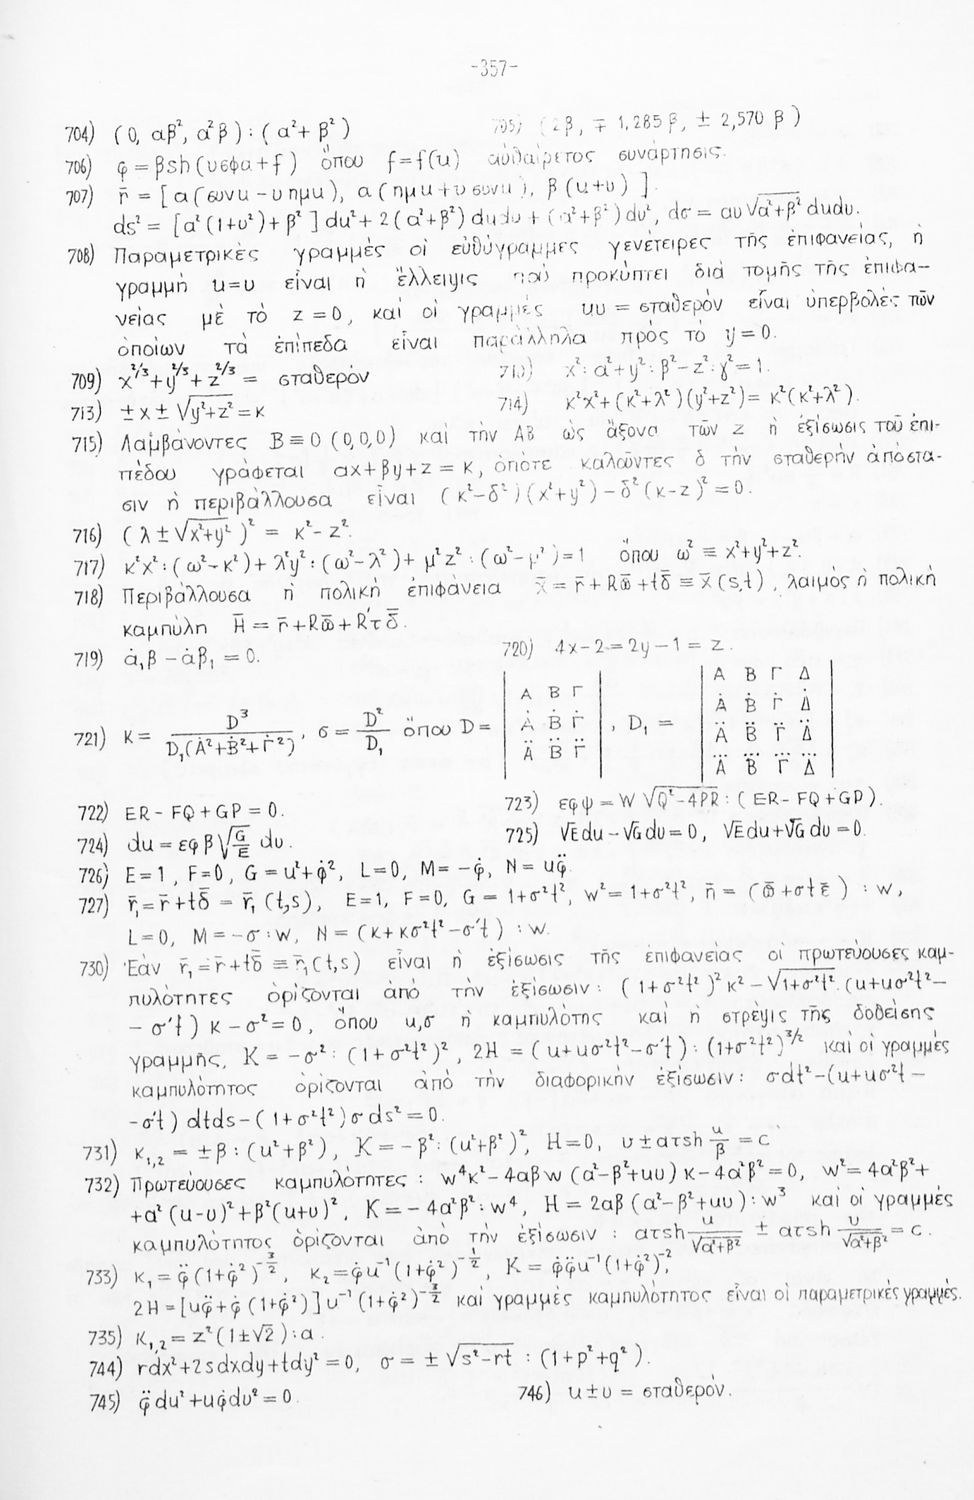 -357-
704) (0, αβ², α²β) : (α²+β²) 705) (2β, ∓ 1,285 β, ± 2,570 β)
706) φ = βsh(υεφα+f) ὅπου f=f(u) αὐθαίρετος συνάρτησις.
707) r̄ = [α(συνu - υ ημu), α(ημu+υ συνu), β(u+υ)]
ds² = [α²(1+υ²)+β²] du²+2(α²+β²) dudυ + (α²+β²) dυ², dσ = αυ√α²+β² dudυ.
708) Παραμετρικές γραμμές οἱ εὐθύγραμμες γενέτειρες τῆς ἐπιφανείας, ἡ
γραμμή u=υ εἶναι ἡ ἔλλειψις πού προκύπτει διά τομῆς τῆς ἐπιφα-
νείας μέ τό z=0, καί οἱ γραμμές uυ = σταθερόν εἶναι ὑπερβολές τῶν
ὁποίων τά ἐπίπεδα εἶναι παράλληλα πρός τό y=0.
709) x^2/3+y^2/3+z^2/3 = σταθερόν 710) x²:α²+y²:β²-z²:γ²=1.
713) ±x±√y²+z²=κ 714) κ²x²+(κ²+λ²)(y²+z²)=κ²(κ²+λ²).
715) Λαμβάνοντες B≡0 (0,0,0) καί τήν AB ὡς ἄξονα τῶν z ἡ ἐξίσωσις τοῦ ἐπι-
πέδου γράφεται αx+βy+z=κ, ὁπότε καλῶντες δ τήν σταθερήν ἀπόστα-
σιν ἡ περιβάλλουσα εἶναι (κ²-δ²)(x²+y²)-δ²(κ-z)²=0.
716) (λ±√x²+y²)² = κ²-z².
717) κ²x²:(ω²-κ²)+λ²y²:(ω²-λ²)+μ²z²:(ω²-μ²)=1 ὅπου ω² ≡ x²+y²+z².
718) Περιβάλλουσα ἡ πολική ἐπιφάνεια x̄ = r̄+Rω̄+tδ̄ ≡ x̄(s,t), λαιμός ἡ πολική
καμπύλη H̄ = r̄+Rω̄+R΄τδ̄.
719) α̇₁β-α̇β₁ = 0. 720) 4x-2=2y-1=z.
721) κ = D³/D₁(Ȧ²+Ḃ²+Γ̇²), σ = D²/D₁ ὅπου D = |A B Γ / Ȧ Ḃ Γ̇ / Ä B̈ Γ̈|, D₁ = |A B Γ Δ / Ȧ Ḃ Γ̇ Δ̇ / Ä B̈ Γ̈ Δ̈ / A⃛ B⃛ Γ⃛ Δ⃛|
722) ER-FQ+GP=0. 723) εφψ=W√Q²-4PR:(ER-FQ+GP).
724) du = εφβ√G/E dυ. 725) √Edu-√Gdυ=0, √Edu+√Gdυ=0.
726) E=1, F=0, G=u²+φ̇², L=0, M=-φ̇, N=uφ̈.
727) r̄₁=r̄+tδ̄ = r̄₁(t,s), E=1, F=0, G=1+σ²t², w²=1+σ²t², n̄=(ω̄+σtε̄):w,
L=0, M=-σ:w, N=(κ+κσ²t²-σ΄t):w.
730) Ἐάν r̄₁=r̄+tδ̄≡r̄₁(t,s) εἶναι ἡ ἐξίσωσις τῆς ἐπιφανείας οἱ πρωτεύουσες καμ-
πυλότητες ὁρίζονται ἀπό τήν ἐξίσωσιν: (1+σ²t²)²κ²-√1+σ²t².(u+uσ²t²-
-σ΄t)κ-σ²=0, ὅπου u,σ ἡ καμπυλότης καί ἡ στρέψις τῆς δοθείσης
γραμμῆς, K=-σ²:(1+σ²t²)², 2H=(u+uσ²t²-σ΄t):(1+σ²t²)^3/2 καί οἱ γραμμές
καμπυλότητος ὁρίζονται ἀπό τήν διαφορικήν ἐξίσωσιν: σdt²-(u+uσ²t-
-σ΄t)dtds-(1+σ²t²)σds²=0.
731) κ₁,₂ = ±β:(u²+β²), K=-β²:(u²+β²)², H=0, υ±ατsh u/β = c
732) Πρωτεύουσες καμπυλότητες: w⁴κ²-4αβw(α²-β²+uυ)κ-4α²β²=0, w²=4α²β²+
+α²(u-υ)²+β²(u+υ)², K=-4α²β²:w⁴, H=2αβ(α²-β²+uυ):w³ καί οἱ γραμμές
καμπυλότητος ὁρίζονται ἀπό τήν ἐξίσωσιν: ατsh u/√α²+β² ± ατsh υ/√α²+β² = c.
733) κ₁=φ̈(1+φ̇²)^-3/2, κ₂=φ̇u⁻¹(1+φ̇²)^-1/2, K=φ̇φ̈u⁻¹(1+φ̇²)⁻²,
2H=[uφ̈+φ̇(1+φ̇²)]u⁻¹(1+φ̇²)^-3/2 καί γραμμές καμπυλότητος εἶναι οἱ παραμετρικές γραμμές.
735) κ₁,₂=z²(1±√2):α.
744) rdx²+2sdxdy+tdy²=0, σ=±√s²-rt : (1+p²+q²).
745) φ̈du²+uφ̇dυ²=0. 746) u±υ = σταθερόν.